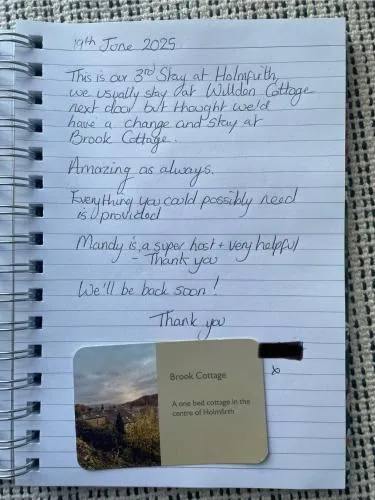 19th June 2025
This is our 3rd Stay at Holmfirth,
we usually stay at Willdon Cottage
next door but thought we'd
have a change and stay at
Brook Cottage.
Amazing as always.
Everything you could possibly need
is provided
Mandy is a super host + very helpful
- Thank you
We'll be back soon!
Thank you
x
Brook Cottage
A one bed cottage in the
centre of Holmfirth